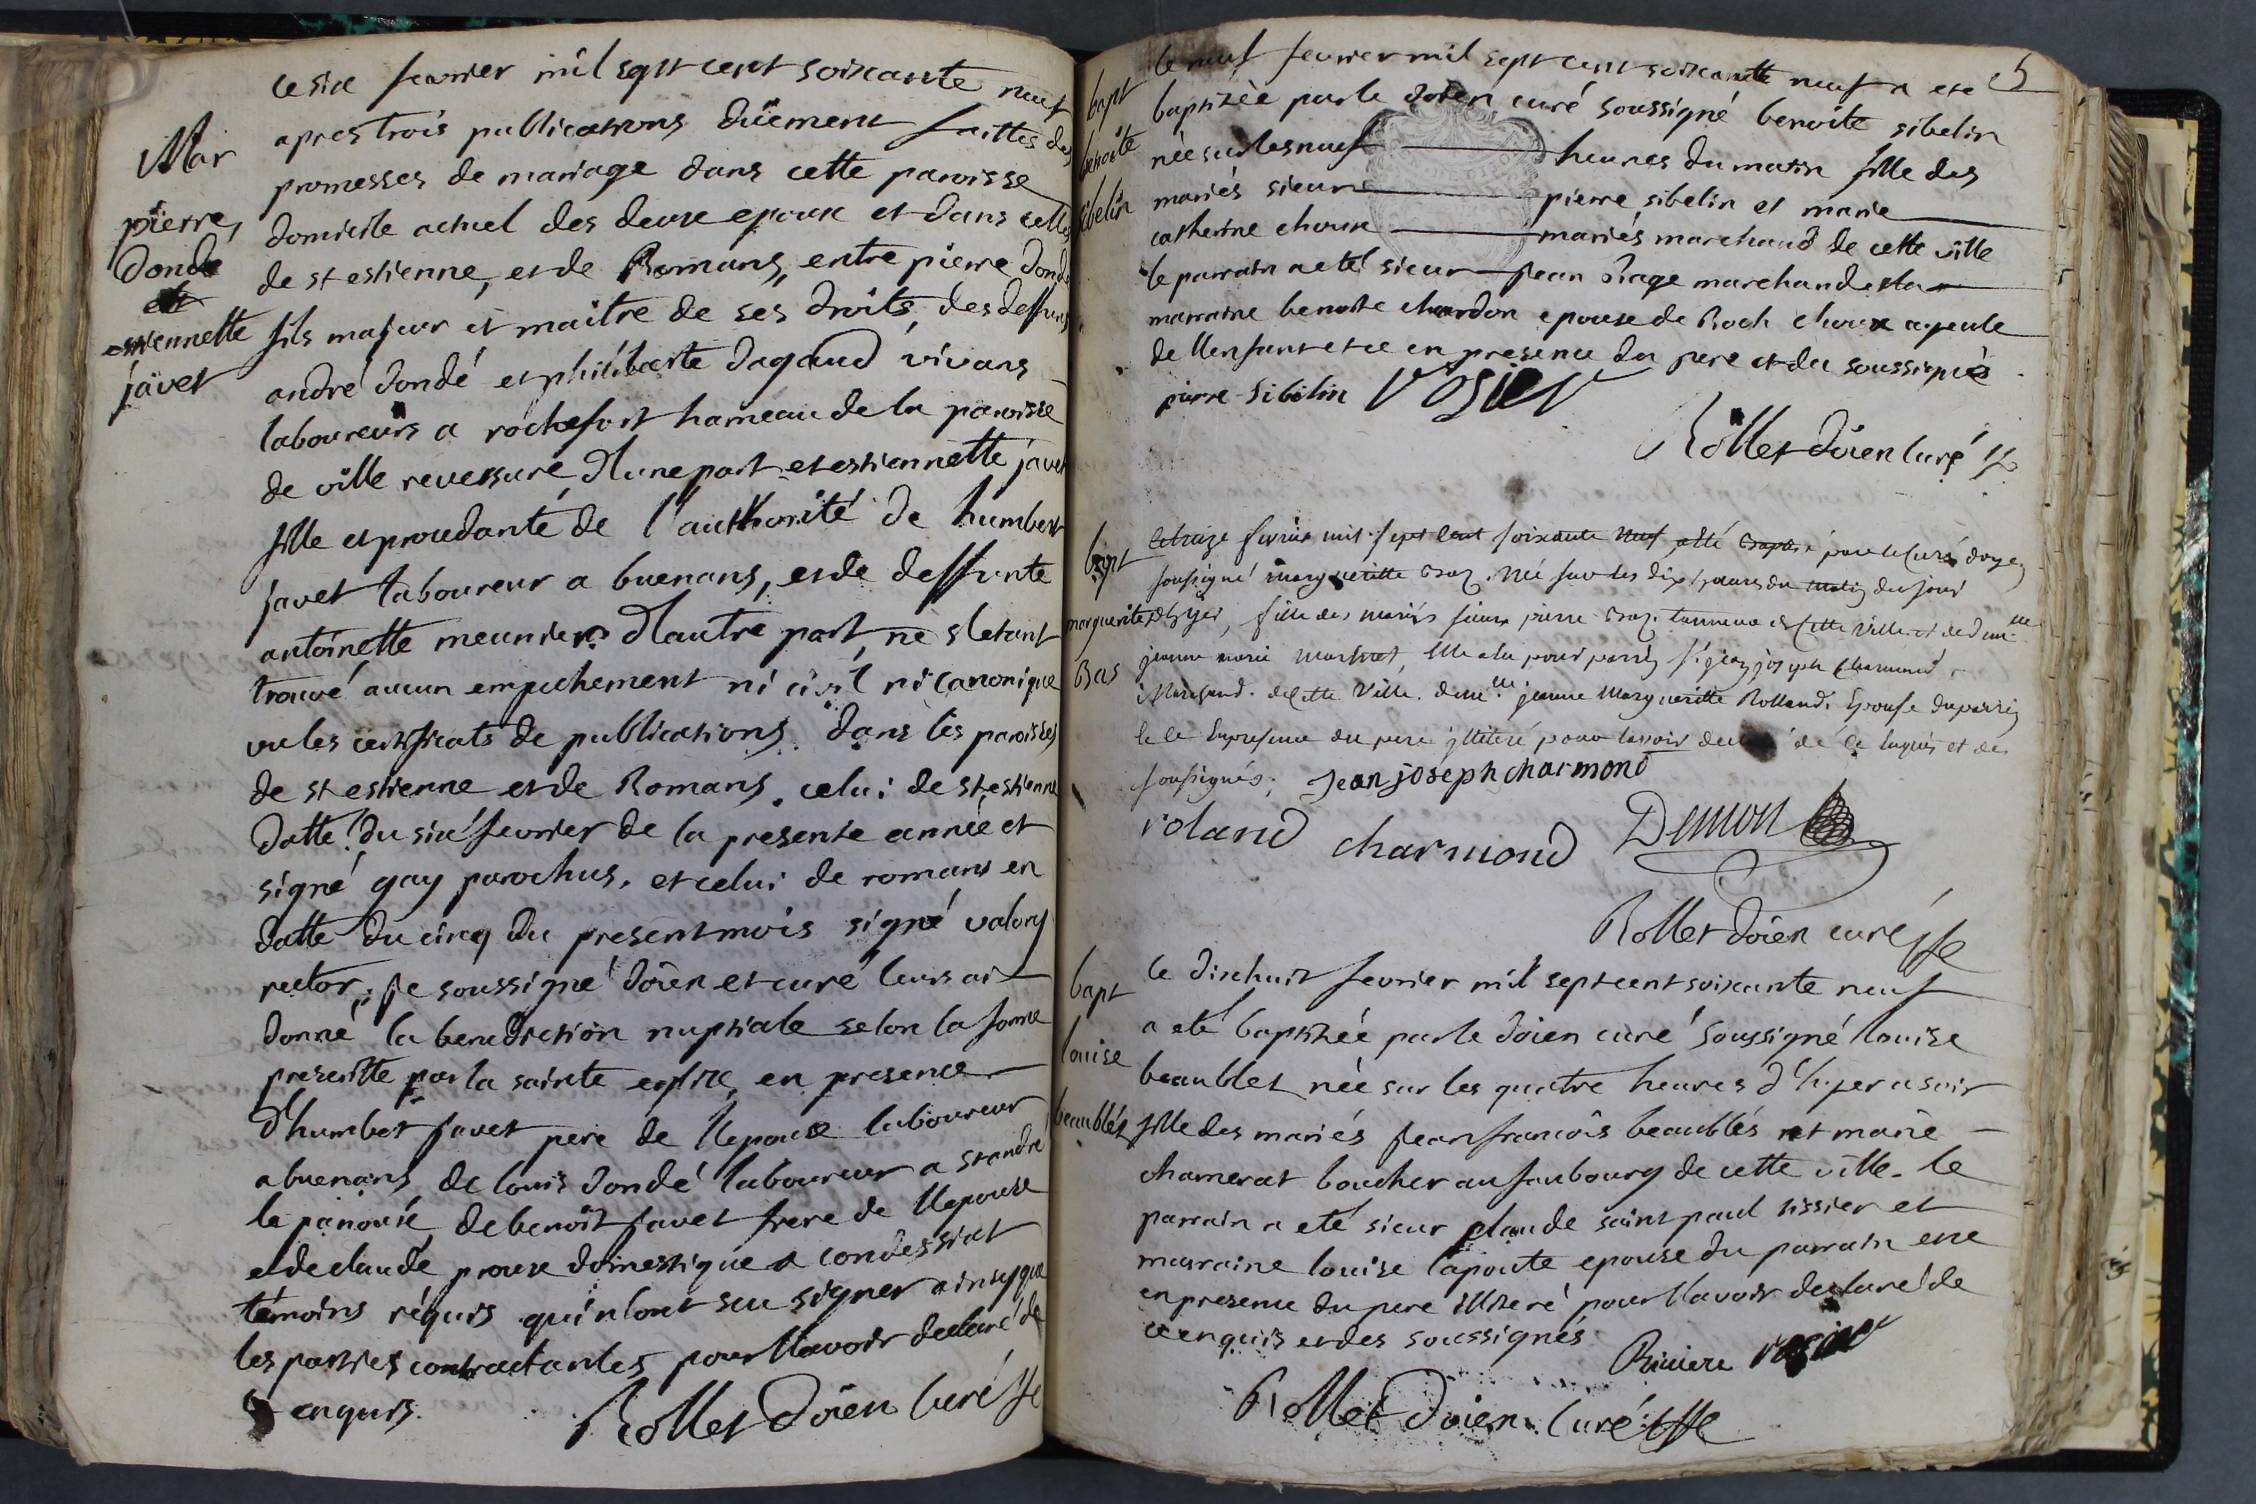 Mar
pierre
dondé
et
estiennette
javet
le six fevrier mil sept cent soixante neuf
apres trois publications düement faittes des
promesses de mariage dans cette paroisse
domicile actuel des deux epoux et dans celles
de st estienne, et de Romans, entre pierre dondé
fils majeur et maitre de ses droits, des deffunts
andré dondé et philiberte dagaud vivans
laboureurs a rochefort hameau de la paroisse
de ville reversure, d'une part et estiennette javet
fille et procedante de l'authorité de humbert
javet laboureur a buenans, et de deffunte
antoinette meunier d'autre part, ne s'etant
trouvé aucun empechement ni civil ni canonique
vu les certificats de publications dans les paroisses
de st estienne et de Romans, celui de st estienne
datté du six fevrier de la presente année et
signé gay parochus, et celui de romans en
datte du cinq du present mois signé valory
rector, je soussigné doïen et curé leurs ai
donné la benediction nuptiale selon la forme
prescritte par la sainte eglise, en presence
d'humbert javet pere de l'epouse laboureur
a buenans, de louis dondé laboureur a st andré
le panoux, de benoît javet frere de l'epouse
et de claude proux domestique a condessiat
témoins réquis qui n'ont sçu signer ainsy que
les parties contractantes pour l'avoir declaré de
ce enquis.
Rollet doïen curé
5
bapt
benoite
sibelin
le neuf fevrier mil sept cent soixante neuf a eté
baptizée par le doïen curé soussigné benoite sibelin
née sur les neuf heures du matin fille des
mariés sieur pierre sibelin et marie
catherine choux mariés marchand de cette ville
le parrain a eté sieur jean diage marchand et la
marraine benoite chardon epouse de Roch choux ayeule
de l'enfant et ce en presence du pere et du soussignés
pierre sibelin Vosier
Rollet doïen curé
bapt
marguerite
Bas
le treize fevrier mil sept cent soixante neuf a été baptisé par le curé doyen
soussigné marguerite Baz née sur les dix heures du matin du jour
d'hyer, fille des mariés sieur pierre Baz tanneur de cette ville et de dem.lle
jeanne marie Martinet, elle a eu pour parrin sr jean joseph charmond
Marchand de cette ville. dem.lle jeanne Marguerite Rolland Epouse du parrin
le en presence du pere illiteré pour l'avoir de ce enquis et des
soussignés, Jean joséph charmond
roland charmond Demon
Rollet doïen curé
bapt
louise
beaublés
le dixhuit fevrier mil sept cent soixante neuf
a eté baptizée par le doïen curé soussigné louise
beaublet née sur les quatre heures d'hyer a soir
fille des mariés jean francois beaublés et marie
chamerat boucher au faubourg de cette ville. le
parrain a eté sieur plaude saint paul tissier et
marraine louise lapoute epouse du parrain et ce
en presence du pere illiteré pour l'avoir declaré de
ce enquis et des soussignés
Riviere Vosier
Rollet doïen curé